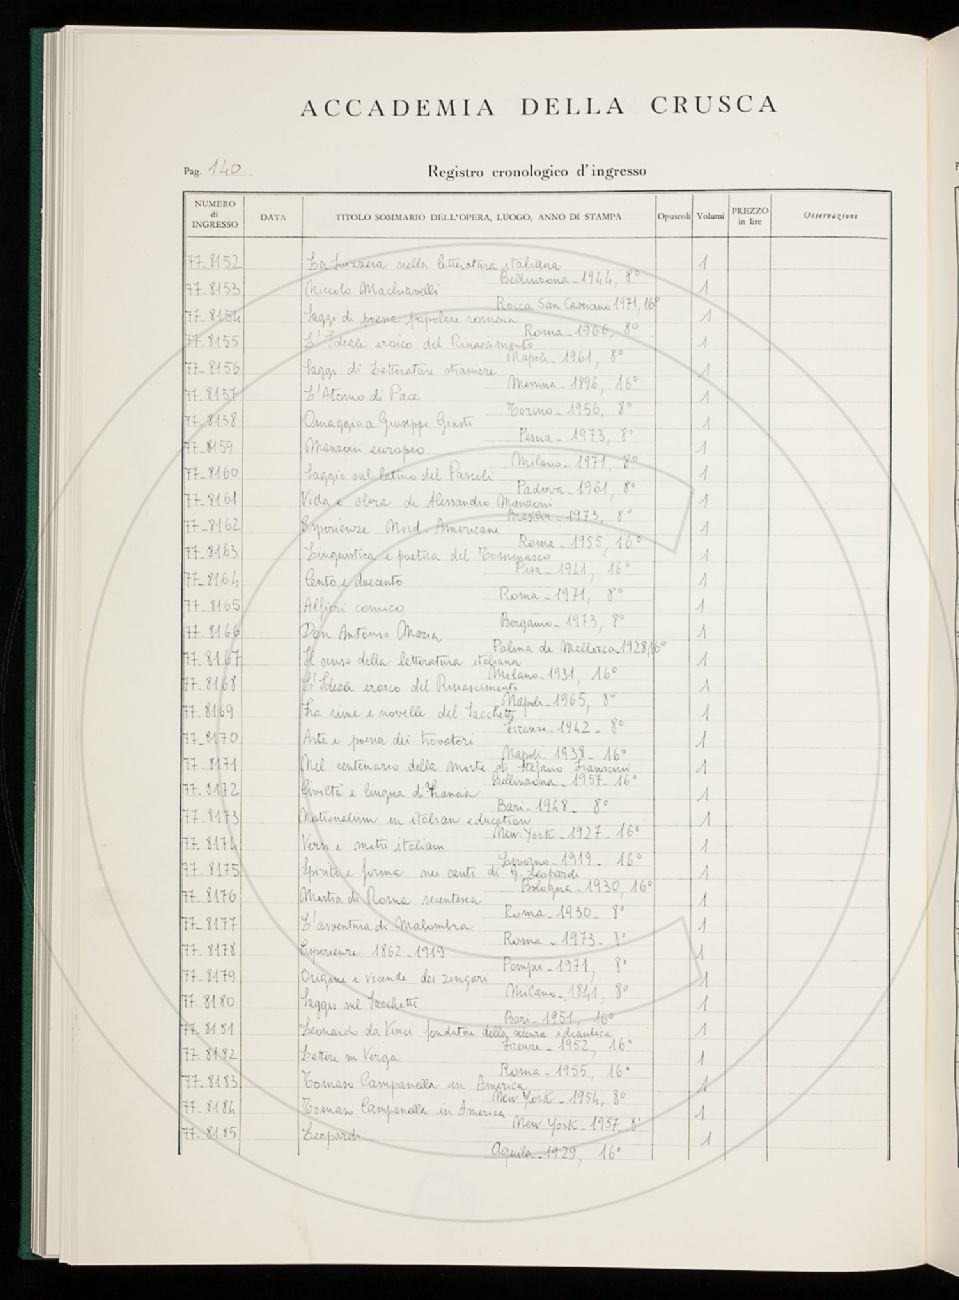 ACCADEMIA DELLA CRUSCA
Pag. 140
Registro cronologico d'ingresso
NUMERO di INGRESSO DATA TITOLO SOMMARIO DELL'OPERA, LUOGO, ANNO DI STAMPA Opuscoli Volumi PREZZO in lire Osservazioni
77-8152 La Svizzera nella letteratura italiana 1
Bellinzona - 1944, 8°
77-8153 Niccolò Machiavelli 1
Rocca San Casciano 1971, 16°
77-8154 Saggi di poesia popolare romena 1
Roma - 1966, 8°
77-8155 L'Ideale eroico del Rinascimento 1
Napoli - 1961, 8°
77-8156 Saggi di Letterature straniere 1
Messina - 1896, 16°
77-8157 L'Atomo di Pace 1
Torino - 1956, 8°
77-8158 Omaggio a Giuseppe Giusti 1
Pescia - 1973, 8°
77-8159 Manzoni europeo 1
Milano - 1971, 8°
77-8160 Saggio sul latino del Pascoli 1
Padova - 1961, 8°
77-8161 Vida e obra de Alessandro Manzoni 1
Brasilia - 1973, 8°
77-8162 Esperienze Nord-Americane 1
Roma - 1955, 16°
77-8163 Linguistica e poetica del Tommaseo 1
Pisa - 1941, 16°
77-8164 Cento e duecento 1
Roma - 1971, 8°
77-8165 Alfieri comico 1
Bergamo - 1973, 8°
77-8166 Don Antonio Maria 1
Palma de Mallorca 1928, 16°
77-8167 Il senso della letteratura italiana 1
Milano - 1931, 16°
77-8168 L'Ideale eroico del Rinascimento 1
Napoli - 1965, 8°
77-8169 Fra rime e novelle del Sacchetti 1
Firenze - 1942 - 8°
77-8170 Arte e poesia dei trovatori 1
Napoli - 1938 - 16°
77-8171 Nel centenario della morte di Stefano Franscini 1
Bellinzona - 1957 - 16°
77-8172 Civiltà e lingua di Francia 1
Bari - 1948 - 8°
77-8173 Nationalism in italian education 1
New York - 1927 - 16°
77-8174 Versi e metri italiani 1
Livorno - 1919 - 16°
77-8175 Spirito e forma nei canti di G. Leopardi 1
Bologna - 1930, 16°
77-8176 Mostra di Roma secentesca 1
Roma - 1930 - 8°
77-8177 L'avventura di Malombra 1
Roma - 1973 - 8°
77-8178 Esperienze 1862-1919 1
Pompei - 1971, 8°
77-8179 Origine e vicende dei zingari 1
Milano - 1841, 8°
77-8180 Saggio sul Sacchetti 1
Bari - 1951, 16°
77-8181 Leonardo da Vinci fondatore della scienza idraulica 1
Firenze - 1952, 16°
77-8182 Lettere su Verga 1
Roma - 1955, 16°
77-8183 Tomaso Campanella in America 1
New York - 1954, 8°
77-8184 Tomaso Campanella in America 1
New York - 1957, 8°
77-8185 Leopardi 1
Aquila - 1929, 16°